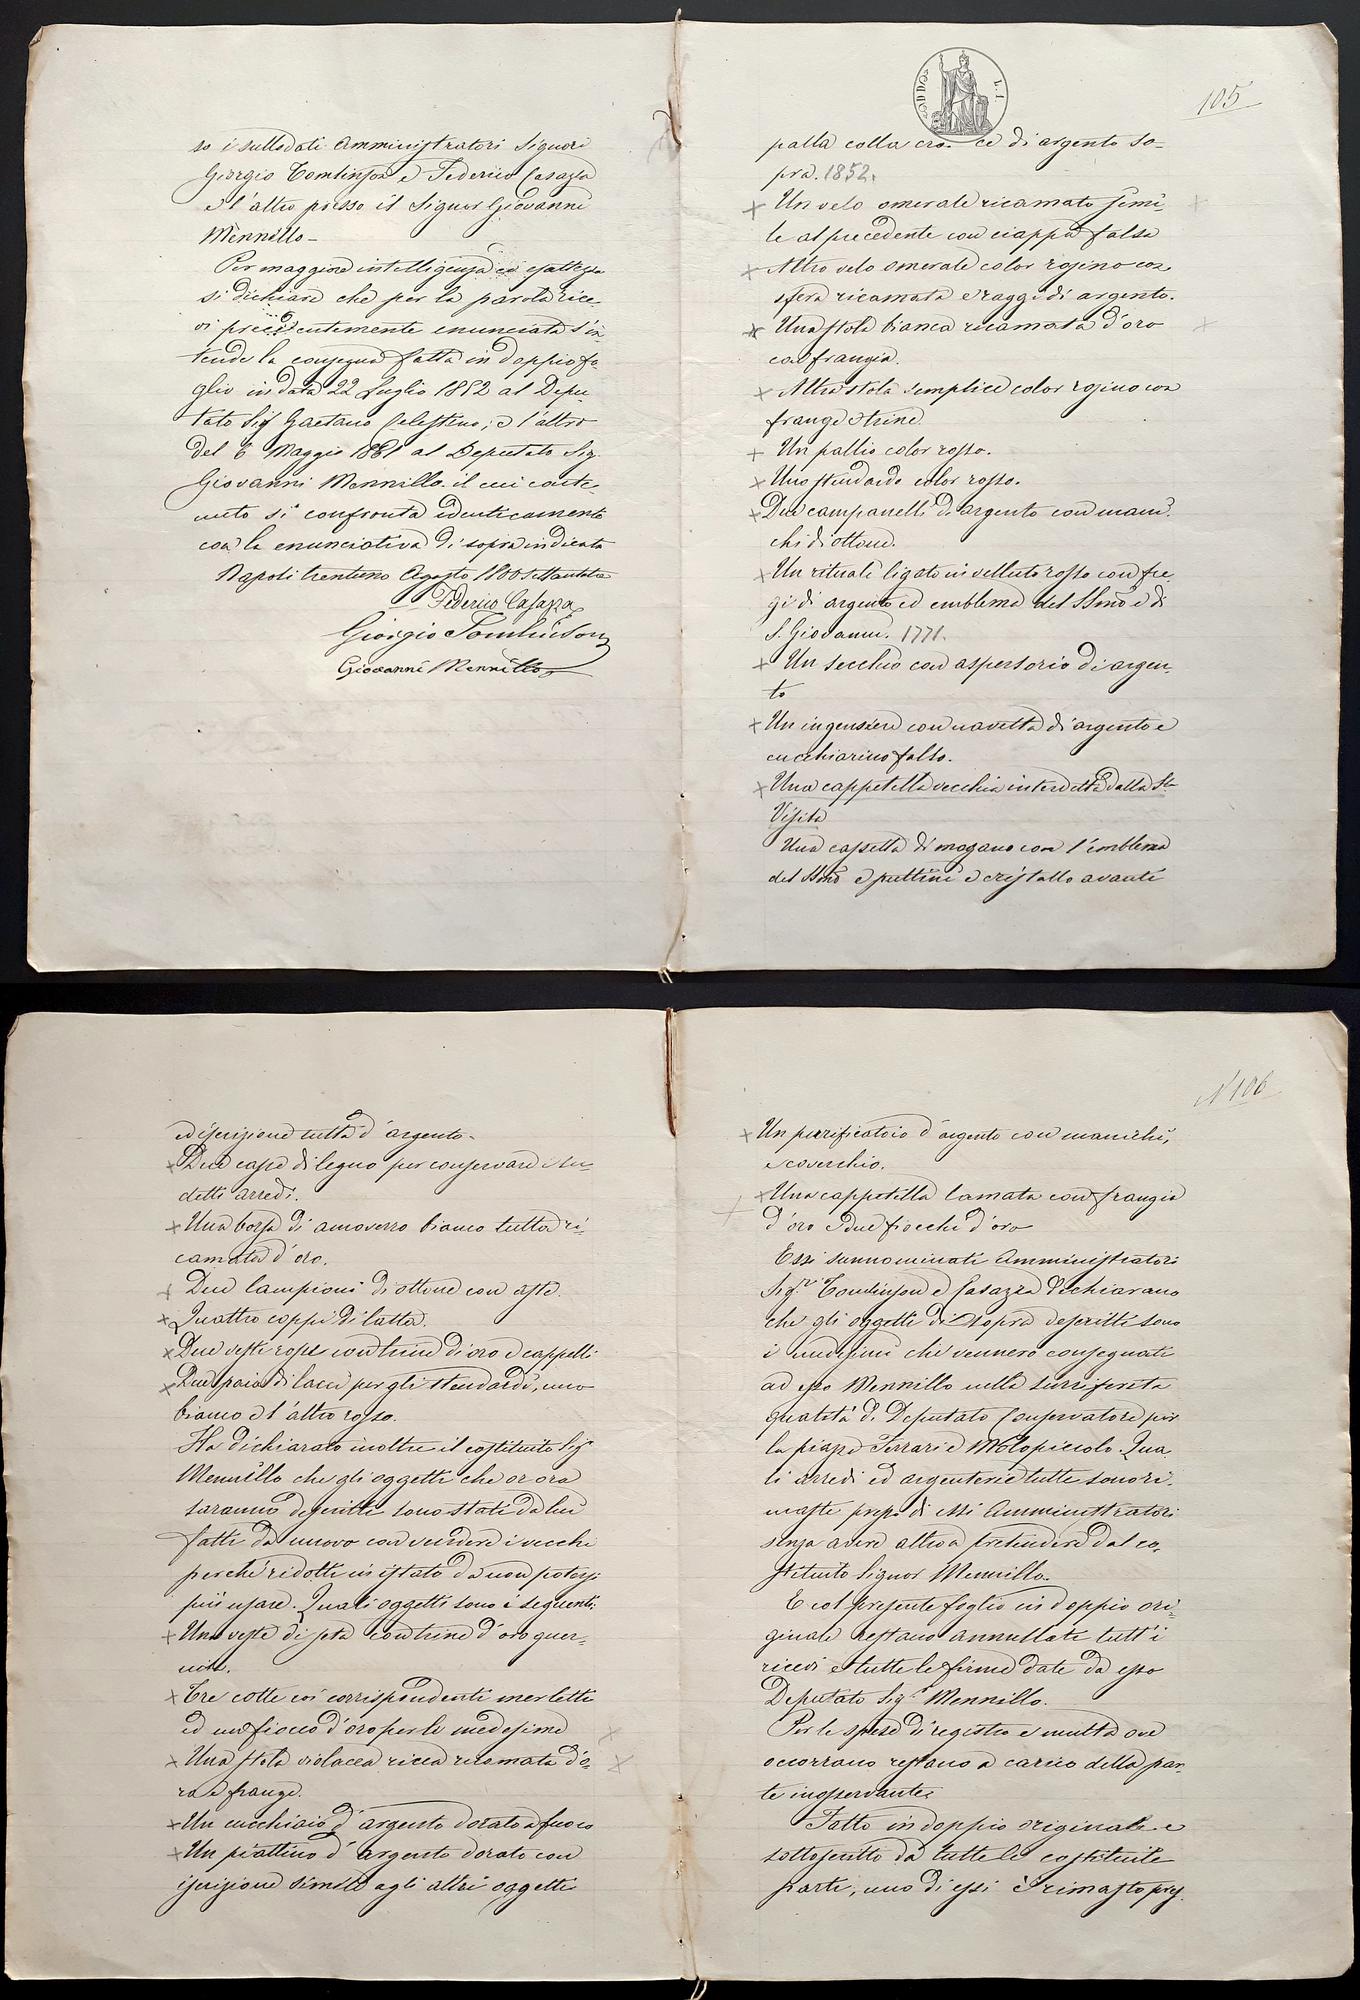 so i sullodati Amministratori Signori
Giorgio Tomlinson e Federico Casazza
e l'altro presso il Signor Giovanni
Mennillo_
Per maggiore intelligenza ed esattezza
si dichiara che per la parola rice-
vi precedentemente enunciata s'in-
tende la consegna fatta in doppio fo-
glio in data 22 Luglio 1852 al Depu-
tato Sig Gaetano Celestino; e l'altro
del 6 Maggio 1861 al Deputato Sig.
Giovanni Mennillo. il cui conte-
nuto si confronta identicamente
con la enunciativa di sopra indicata
Napoli trentuno Agosto 1800settanta
Federico Casazza
Giorgio Tomlinson
Giovanni Mennillo
L. 1
105
palla colla croce di argento so-
pra. 1852.
Un velo omerale ricamato simi-
le al precedente con ciappa falsa
Altro velo omerale color rosino con
sfera ricamata e raggi di argento.
Una stola bianca ricamata d'oro
con frangia.
Altra stola semplice color rosino con
frange e trine.
Un pallio color rosso.
Uno stendardo color rosso.
Due campanelli di argento con mani-
chi di ottone.
Un rituale ligato in velluto rosso con fre-
gi di argento ed emblema del SSmo e di
S. Giovanni. 1771.
Un secchio con aspersorio di argen-
to
Un ingensiere con navetta di argento e
cucchiarino falso.
Una cappetella vecchia interdetta dalla Sta
Visita
Una cassetta di mogano con l'emblema
del SSmo e puttini e cristallo avanti
ed iscrizione tutta d'argento.
Due casse di legno per conservare su-
detti arredi.
Una borsa di amoverro bianco tutta ri-
camata d'oro.
Due lampioni di ottone con aste.
Quattro coppi di latta.
Due vesti rosse con trine di oro e cappelli
Due paia di lacci per gli stendardi, uno
bianco e l'altro rosso.
Ha dichiarato inoltre il costituito Sigr
Mennillo che gli oggetti che or ora
saranno descritti sono stati da lui
fatti da nuovo con vendere i vecchi
perchè ridotti in istato da non potersi
più usare. Quali oggetti sono i seguenti:
Una veste di seta con trine d'oro guer-
nita.
Tre cotte coi corrispondenti merletti
ed un fiocco d'oro per le medesime
Una stola violacea ricca ricamata d'o-
ro e frange.
Un cucchiaio d'argento dorato a fuoco
Un piattino d'argento dorato con
iscrizione simile agli altri oggetti
N 106
Un purificatoio d'argento con manichi,
e coverchio.
Una cappetella lamata con frangia
d'oro e due fiocchi d'oro
Essi sunnominati Amministratori
Sigri Tomlinson e Casazza dichiarano
che gli oggetti di sopra descritti sono
i medesimi che vennero consegnati
ad esso Mennillo nella surriferita
qualità di Deputato Conservatore per
la piazza Ferrari e Molopiccolo. Qua-
li arredi ed argenterie tutte sono ri-
maste presso di essi Amministratori
senza avere altro a pretendere dal co-
stituito Signor Mennillo.
E col presente foglio in doppio ori-
ginale restano annullati tutt'i
ricevi e tutte le firme date da esso
Deputato Sigr Mennillo.
Per le spese di registro e multa ove
occorrano restano a carico della par-
te inosservante.
Fatto in doppio originale e
sottoscritto da tutte le costituite
parti, uno di essi è rimasto pres-